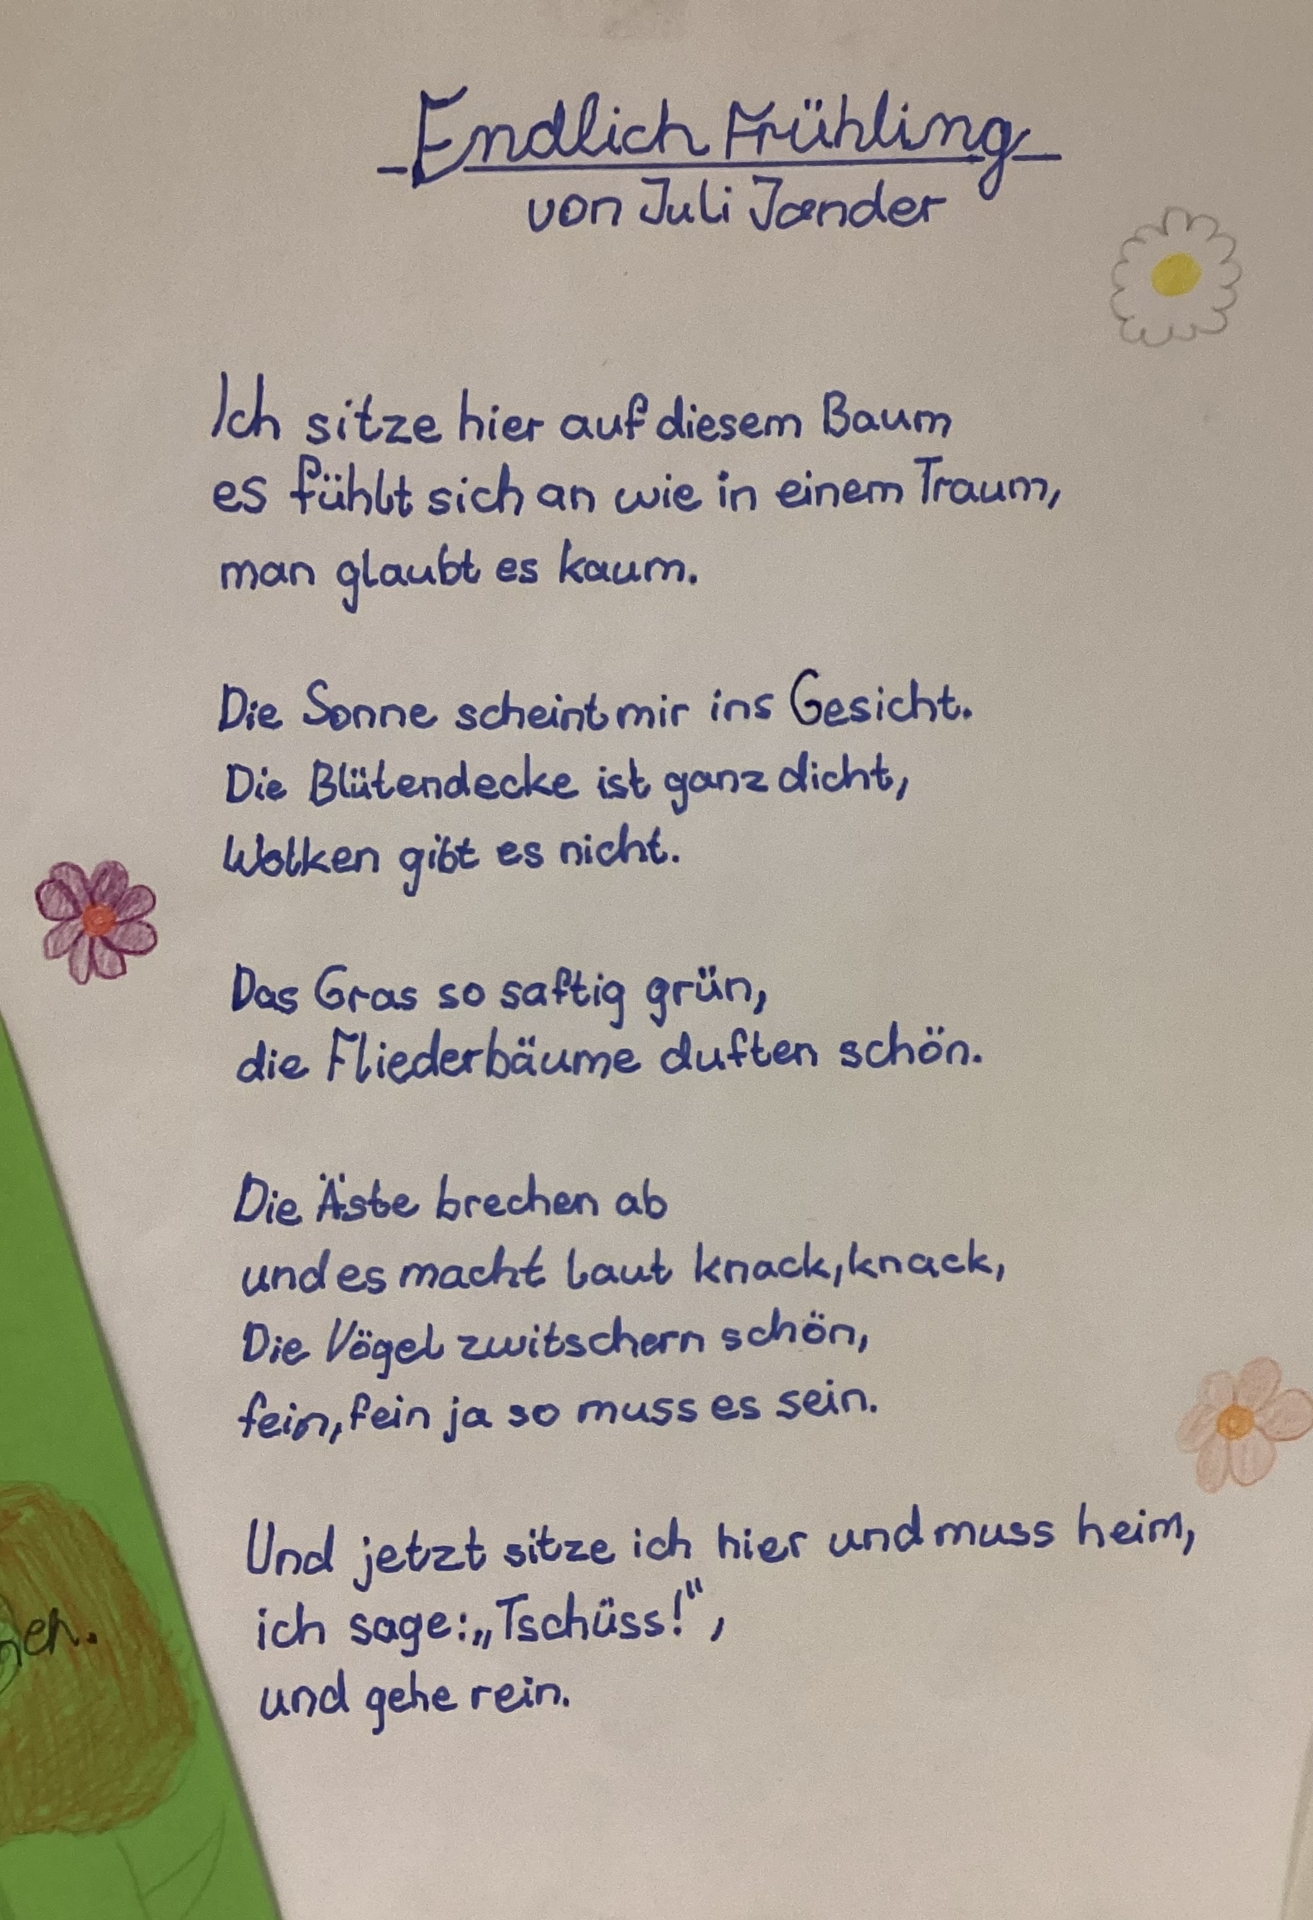 Endlich Frühling
von Juli Jander
Ich sitze hier auf diesem Baum
es fühlt sich an wie in einem Traum,
man glaubt es kaum.
Die Sonne scheint mir ins Gesicht.
Die Blütendecke ist ganz dicht,
Wolken gibt es nicht.
Das Gras so saftig grün,
die Fliederbäume duften schön.
Die Äste brechen ab
und es macht laut knack, knack,
Die Vögel zwitschern schön,
fein, fein ja so muss es sein.
Und jetzt sitze ich hier und muss heim,
ich sage: „Tschüss!",
und gehe rein.